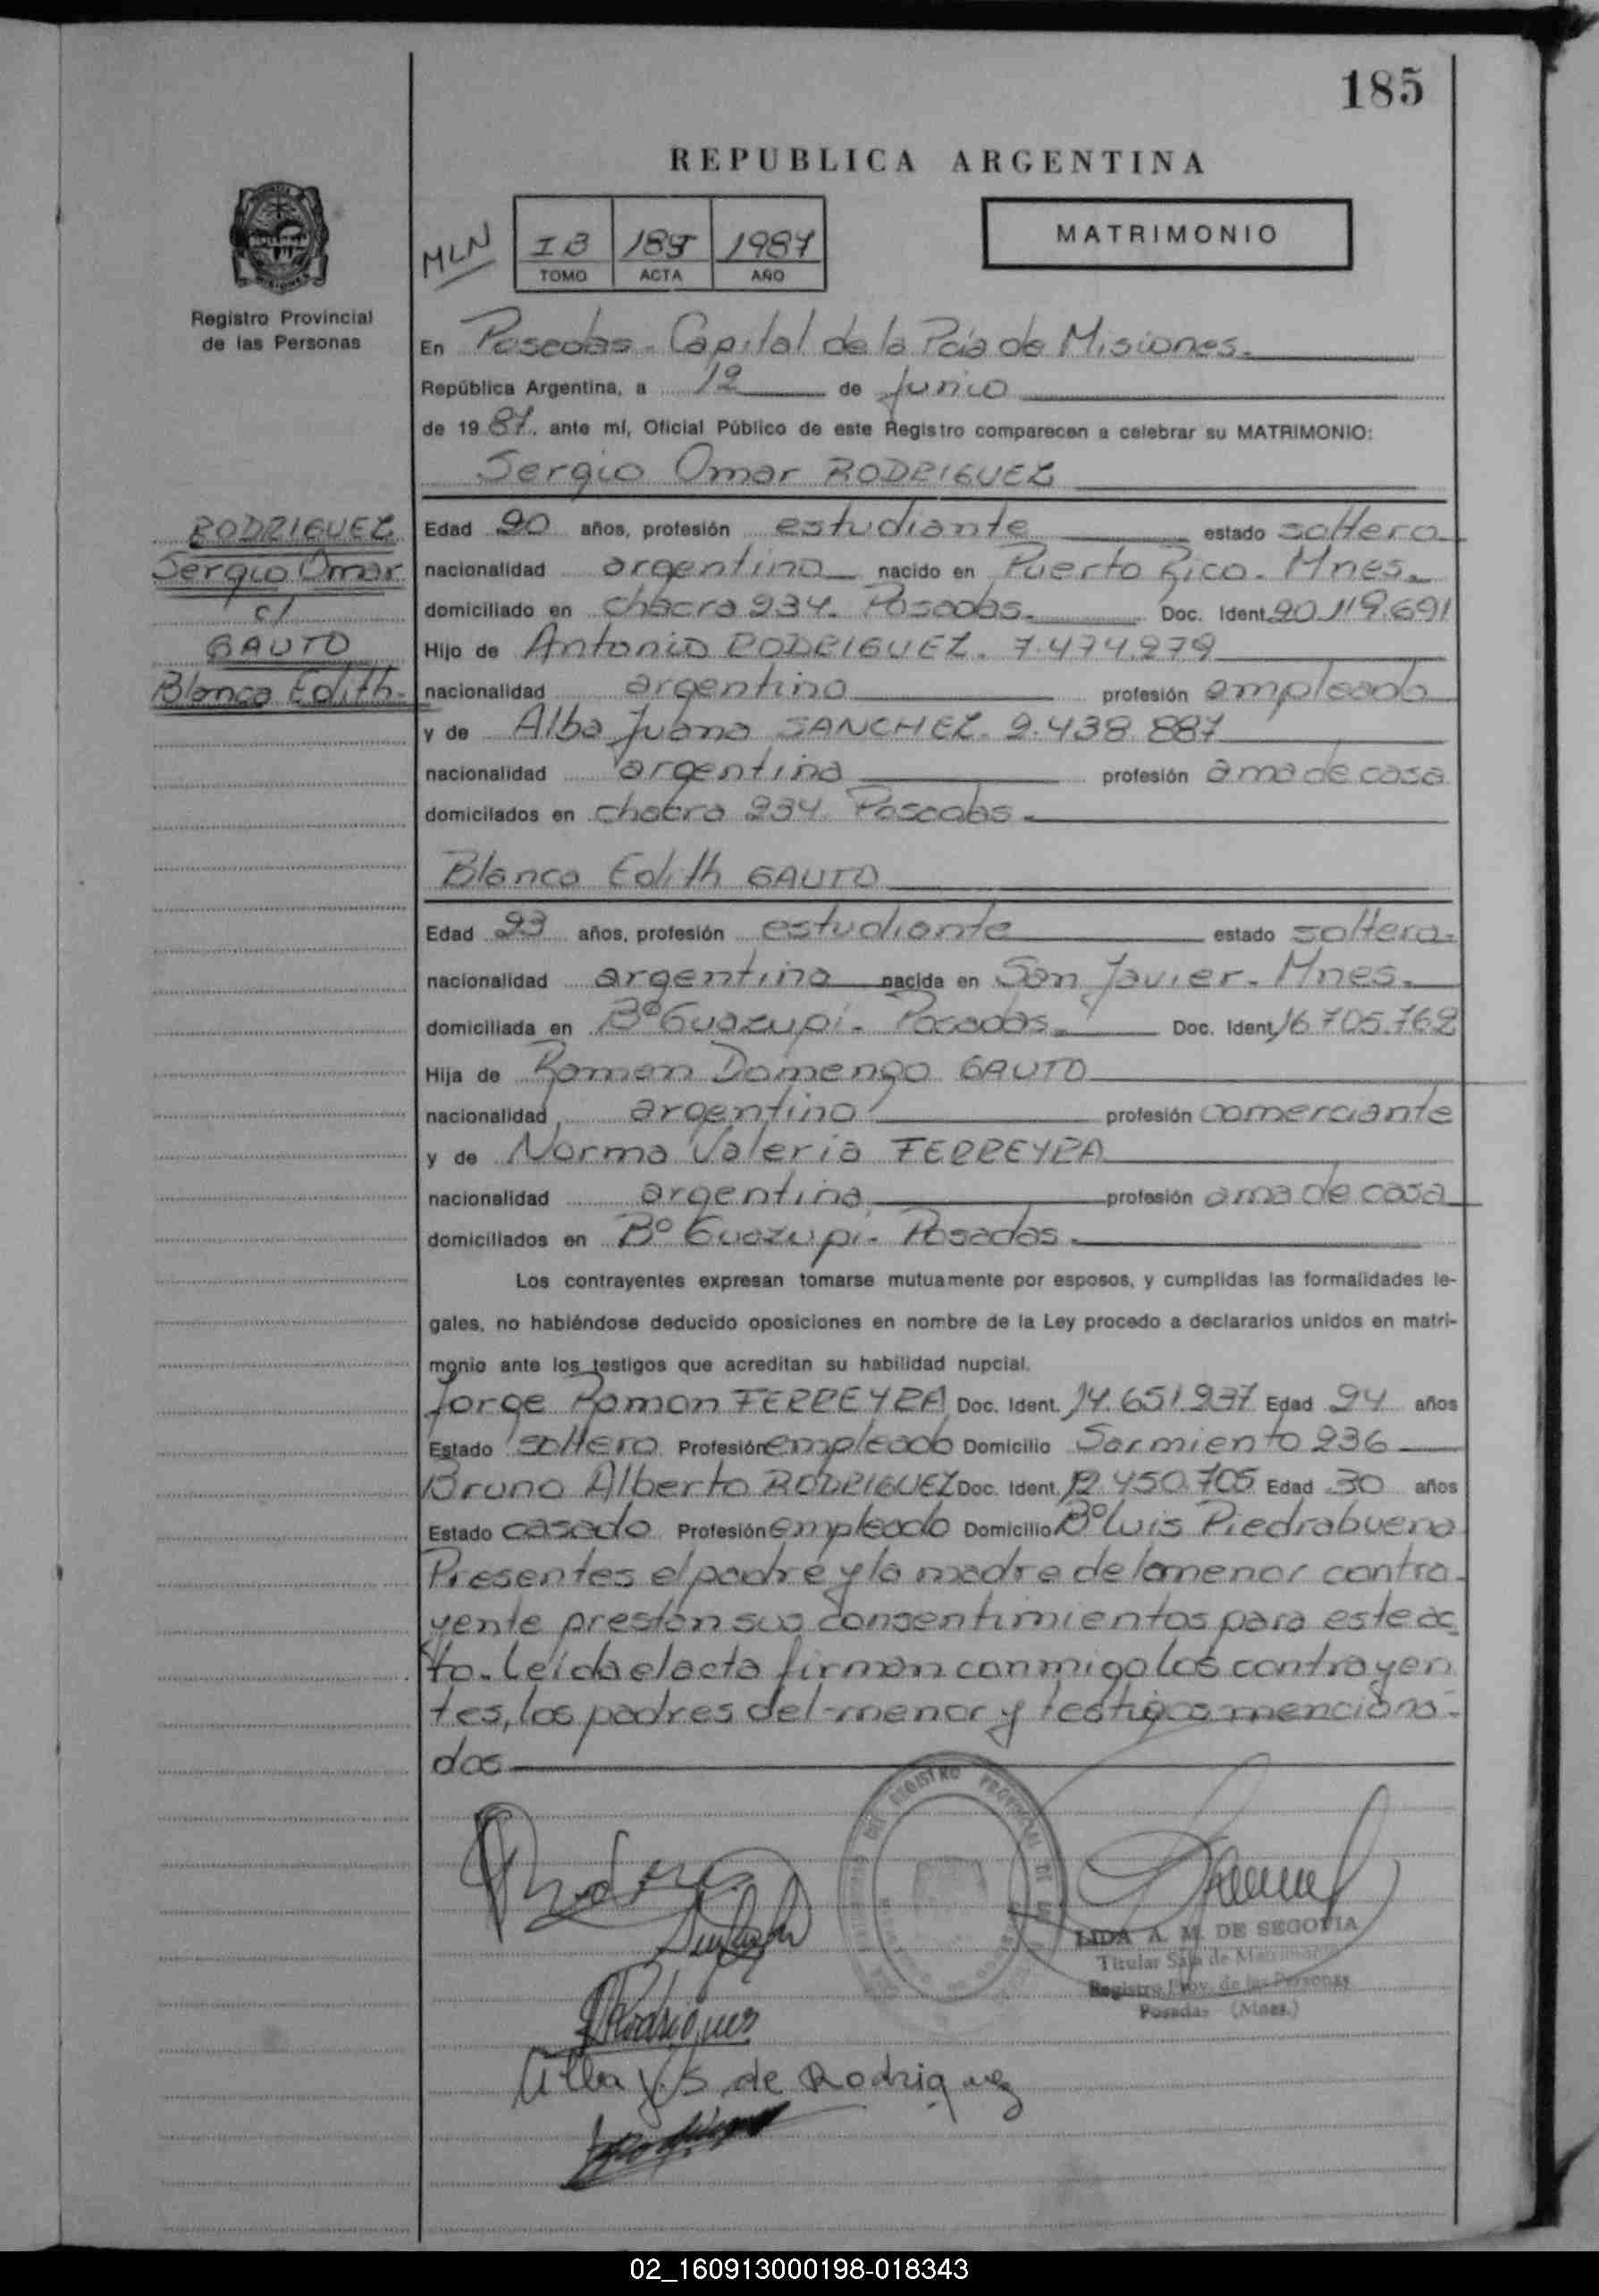 185
REPUBLICA ARGENTINA
MLN
I B 185 1987
TOMO ACTA AÑO
MATRIMONIO
Registro Provincial
de las Personas
En Posadas - Capital de la Pcia de Misiones.
República Argentina, a 12 de Junio
de 1987, ante mí, Oficial Público de este Registro comparecen a celebrar su MATRIMONIO:
Sergio Omar RODRIGUEZ
RODRIGUEZ
Sergio Omar
c/
GAUTO
Blanca Edith.
Edad 20 años, profesión estudiante estado soltero
nacionalidad argentino nacido en Puerto Rico. Mnes.
domiciliado en chacra 234. Posadas. Doc. Ident. 20.119.691
Hijo de Antonio RODRIGUEZ. 7.474.279
nacionalidad argentino profesión empleado
y de Alba Juana SANCHEZ. 2.438.887
nacionalidad argentina profesión ama de casa
domicilados en chacra 234. Posadas.
Blanca Edith GAUTO
Edad 23 años, profesión estudiante estado soltera.
nacionalidad argentina nacida en San Javier. Mnes.
domiciliada en Bº Guazupi. Posadas. Doc. Ident. 16.705.762
Hija de Ramon Domengo GAUTO
nacionalidad argentino profesión comerciante
y de Norma Valeria FERREYRA
nacionalidad argentina profesión ama de casa
domiciliados en Bº Guazupi. Posadas.
Los contrayentes expresan tomarse mutuamente por esposos, y cumplidas las formalidades le-
gales, no habiéndose deducido oposiciones en nombre de la Ley procedo a declararlos unidos en matri-
monio ante los testigos que acreditan su habilidad nupcial.
Jorge Ramon FERREYRA Doc. Ident. 14.651.237 Edad 24 años
Estado soltero Profesión empleado Domicilio Sarmiento 236
Bruno Alberto RODRIGUEZ Doc. Ident. 12.450.705 Edad 30 años
Estado casado Profesión empleado Domicilio Bº Luis Piedrabuena
Presentes el padre y la madre de la menor contra-
yente prestan sus consentimientos para este ac
to. Leída el acta firman conmigo los contrayen
tes, los padres del menor y testigos menciona-
dos
DEL REGISTRO PROVINCIAL DE LAS
LIDA A. M. DE SEGOVIA
Titular Sala de Matrimonio
Registro Prov. de las Personas
Posadas (Mnes.)
Rodriguez
Alba J. S. de Rodriguez
02_160913000198-018343